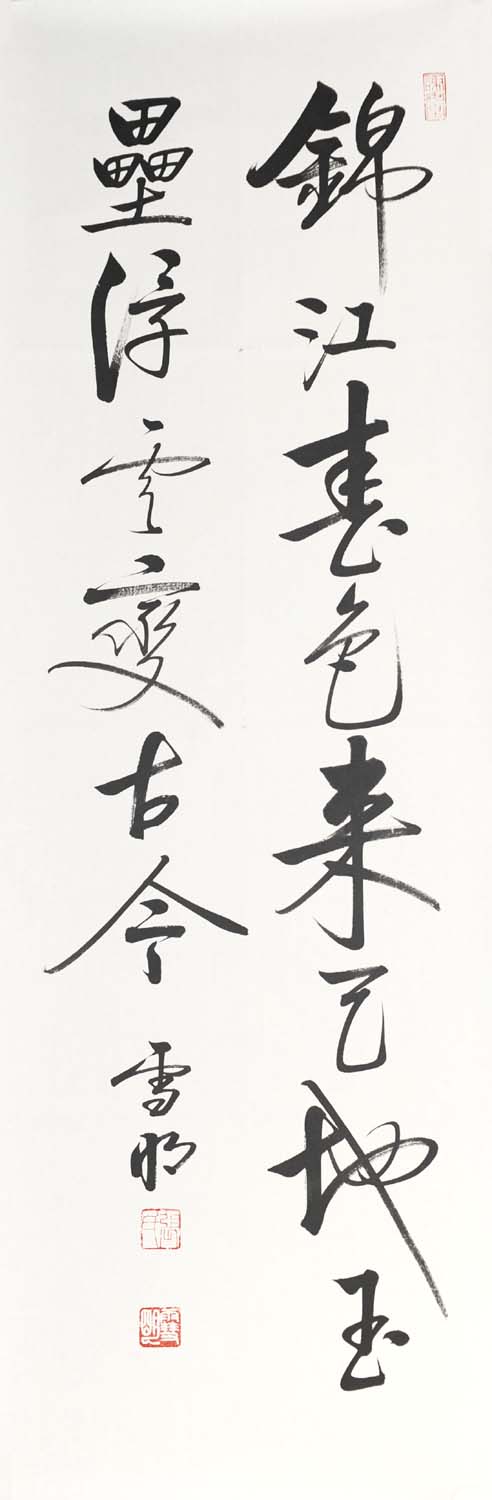 錦江春色来天地玉
壘浮雲變古今
雪明